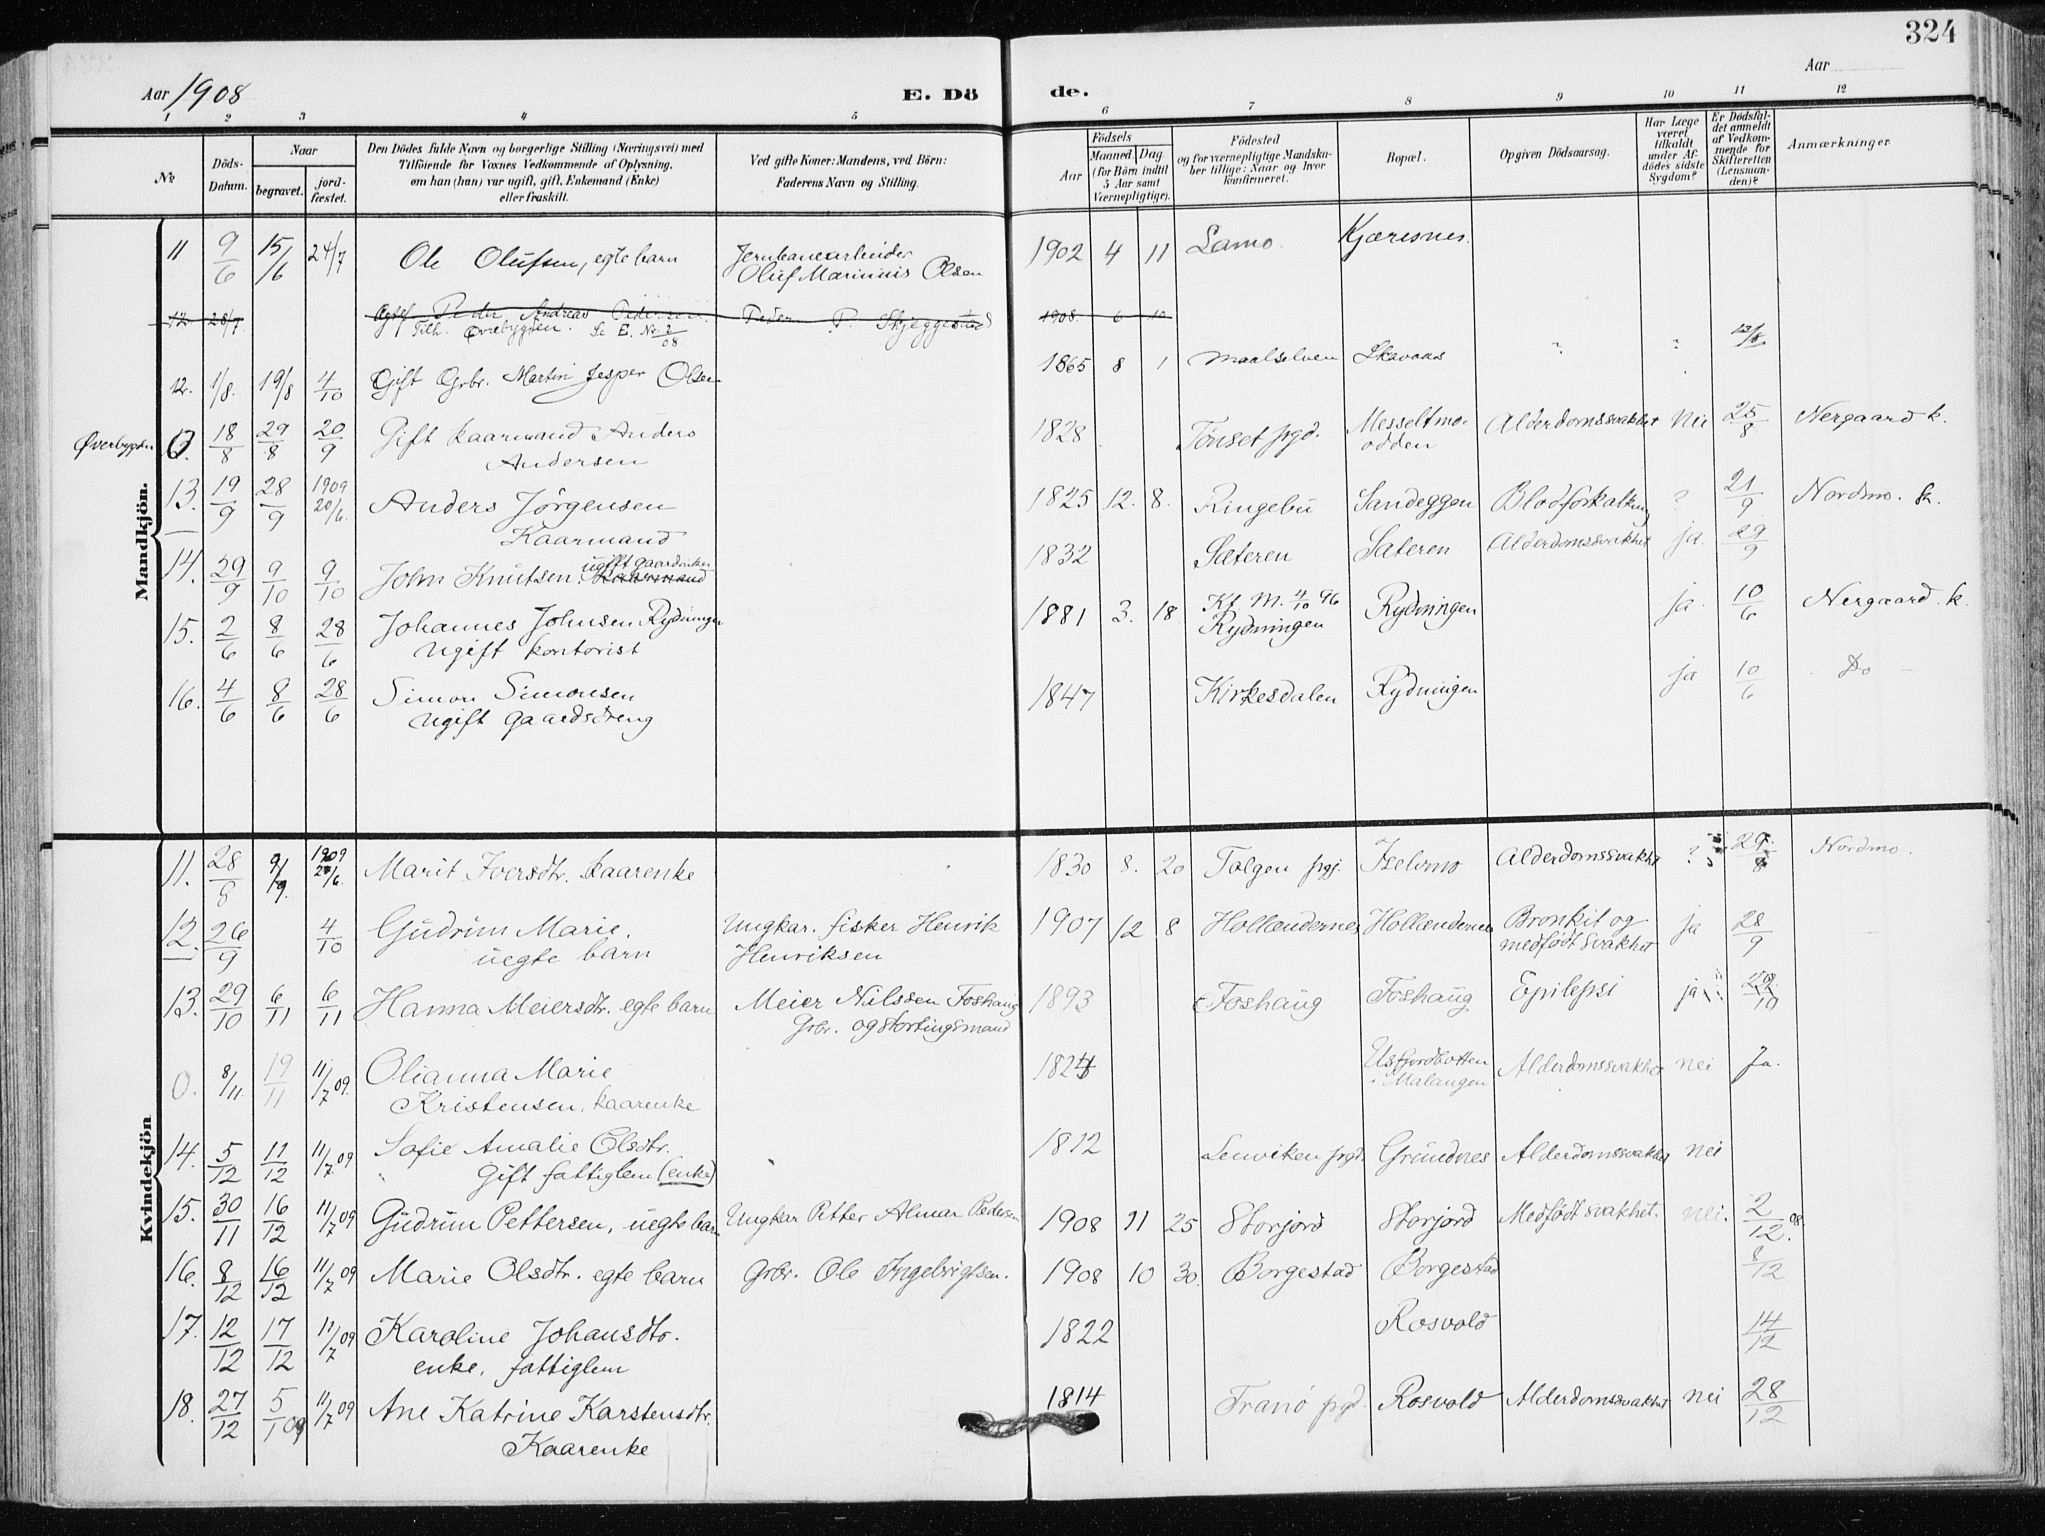 324
Aar 1908
E. Dö de.
Aar
1 2 3 4 5 6 7 8 9 10 11 12
No
Döds-Datum.
Naar
begravet.
jord-fæstet.
Den Dödes fulde Navn og borgerlige Stilling (Næringsvei) med
Tilföiende for Voxnes Vedkommende af Oplysning,
om han (hun) var ugift, gift, Enkemand (Enke)
eller fraskilt.
Ved gifte Koner: Mandens, ved Börn:
Faderens Navn og Stilling.
Födsels
Aar
Maaned. Dag.
(for Börn indtil
5 Aar samt
Værnepligtige).
Födested
og for værnepligtige Mandskaber tillige: Naar og hvor
konfirmeret.
Bopæl.
Opgiven Dödsaarsag.
Har Læge
været
tilkaldt
under Afdödes sidste
Sygdom?
Er Dödsfaldet anmeldt
af Vedkommende for
Skifteretten
(Lensmanden)?
Anmærkninger
Mandkjön.
11 9/6 15/6 24/7 Ole Olufsen, egte barn Jernbanearbeider 1902 4 11 Lamo. Kjæresnes.
Oluf Marinius Olsen
12. 28/7 Peder Andreas Pedersen Peder P. Skjeggestad 1908. 6 10
Tilh. Øvrebygden. Se E. Nr. 2/08.
12. 1/8. 19/8 4/10 Gift Grbr. Martin Jesper Olsen 1865 8 1 Maalselven ? ?
Øverbygden 0. 18/8 29/8 20/9 Gift kaarmand Anders 1828 Tönset prgd. Messeltmo- Alderdomssvakhet nei 25/8 Nergaard k.
Andersen odden
13. 19/9 28/9 1909 20/6. Anders Jörgensen 1825 12. 8. Ringebu Sandeggen Blodforkalkning ? 21/9 Nordmo. k.
Kaarmand
14. 29/9 9/10 9/10 John Knutsen. ugift gaardbruker Kaarmand 1832 Sæteren Sæteren Alderdomssvakhet ja. 29/9
15. 2/6 8/6 28/6 Johannes Johnsen Rydningen 1881 3. 18. Kf. M. 4/10 96 Rydningen ja 10/6 Nergaard. k.
ugift kontorist Rydningen
16. 4/6 8/6 28/6 Simon Simonsen 1847 Kirkesdalen Rydningen ja 10/6 Do
ugift gaardsdreng
Kvindekjön
11. 28/8 9/9. 1909 20/6. Marit Iversdtr. kaarenke 1830 8. 20 Tolgen prgj. Iselvmo Alderdomssvakhet ? 29/8 Nordmo.
12. 26/9 4/10 Gudrun Marie, Ungkar. fisker Henrik 1907 12 8 Hollændernes Hollændernes Bronkit og ja 28/9
uegte barn Henriksen medfödt svakhet
13. 29/10 6/11 6/11 Hanna Meiersdtr. egte barn Meier Nilssen Foshaug 1893 Foshaug Foshaug Epilepsi ja /10
Grbr. og stortingsmand
0. 8/11. 19/11 11/7 09. Olianna Marie 1824 Alderdomssvakhet nei Ja.
Kristensen, kaarenke i Malangen
14. 5/12 11/12 11/7 09 Sofie Amalie Olsdtr. 1812 Lenviken prgd. Grundnes Alderdomssvakhet nei
Gift fattiglem (enke)
15. 30/11 16/12 11/7 09 Gudrun Pettersen, uegte barn Ungkar Petter Almar Pedersen 1908 11 25 Storjord Storjord Medfödt svakhet. nei. 2/12. 08.
16. 8/12 16/12 11/7 09 Marie Olsdtr. egte barn Grbr. Ole Ingebrigtsen. 1908 10 30. Borgestad Borgestad 8/12
17. 12/12 17/12 11/7 09 Karoline Johansdtr. 1822 Rosvold 14/12
enke. fattiglem
18. 27/12 5/1 09 11/7 09 Ane Katrine Karstensdtr. 1814 Tranö prgd. Rosvold Alderdomssvakhet nei 28/12
Kaarenke